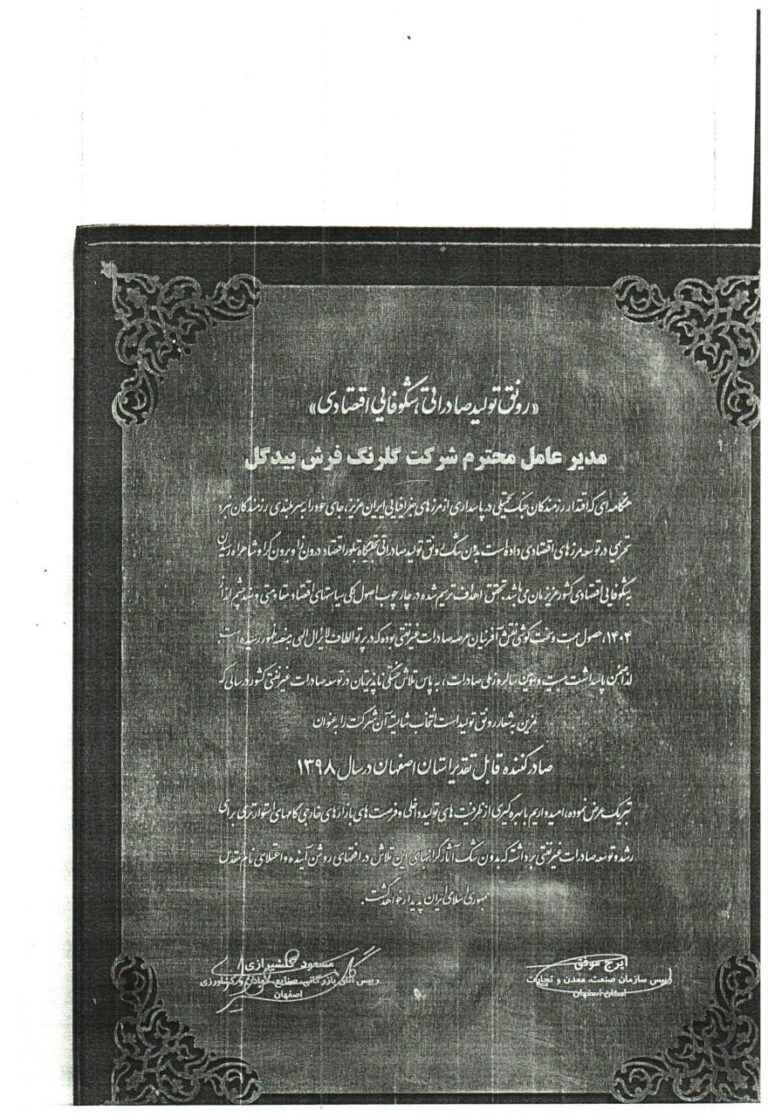 «رونق تولید صادراتی، شکوفایی اقتصادی»
مدیر عامل محترم شرکت گلرنگ فرش بیدگل
هنگامه‌ای که اقتدار رزمندگان جنگ تحمیلی در پاسداری از مرزهای جغرافیایی ایران عزیز، جای خود را به سربلندی رزمندگان نبرد
تحریمی در توسعه مرزهای اقتصادی داده است بدون شک رونق تولید صادراتی تجلیگاه تبلور اقتصاد درون‌زا و برون‌گرا و شاهراه رسیدن
به شکوفایی اقتصادی کشور عزیزمان می‌باشد، تحقق اهداف ترسیم شده در چارچوب اصول کلی سیاستهای اقتصاد مقاومتی و سند چشم انداز
۱۴۰۴، حصول همت و سخت کوشی نقش آفرینان عرصه صادرات غیرنفتی بوده که در پرتو الطاف لایزال الهی به منصه ظهور رسیده است.
لذا ضمن پاسداشت بیست و سومین سالروز ملی صادرات، به پاس تلاش خستگی ناپذیرتان در توسعه صادرات غیرنفتی کشور در سالی که
مزین به شعار رونق تولید است انتخاب شایسته آن شرکت را به عنوان
صادر کننده قابل تقدیر استان اصفهان در سال ۱۳۹۸
تبریک عرض نموده، امیدواریم با بهره گیری از ظرفیت های تولید داخلی و فرصت های بازارهای خارجی گامهای استوارتری برای
رشد و توسعه صادرات غیرنفتی برداشته که بدون شک آثار گرانبهای این تلاش در افقهای روشن آینده و اعتلای نام مقدس
جمهوری اسلامی ایران پدیدار خواهد گشت.
ایرج موفق
رییس سازمان صنعت، معدن و تجارت
استان اصفهان
مسعود گلشیرازی
رییس اتاق بازرگانی، صنایع، معادن و کشاورزی
اصفهان